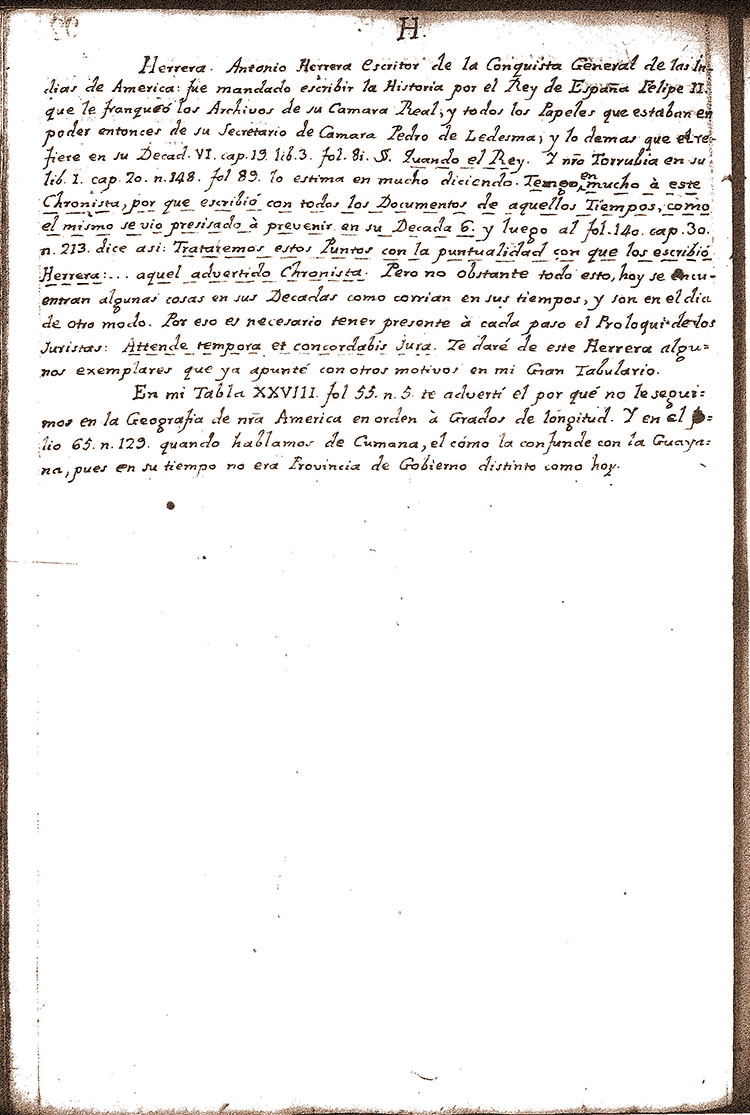 H.
Herrera. Antonio Herrera Escritor de la Conquista General de las In-
dias de America: fue mandado escribir la Historia por el Rey de España Felipe II.
que le franqueó los Archivos de su Camara Real, y todos los Papeles que estaban en
poder entonces de su Secretario de Camara Pedro de Ledesma; y lo demas que el re-
fiere en su Decad. VI. cap. 19. lib. 3. fol. 81. §. Quando el Rey. Y nro Torrubia en su
lib. 1. cap. 20. n. 148. fol 89. lo estima en mucho diciendo. Tengo en mucho à este
Chronista, por que escribió con todos los Documentos de aquellos Tiempos, como
el mismo se vio presisado à prevenir en su Decada 6. y luego al fol. 140. cap. 30.
n. 213. dice asi: Trataremos estos Puntos con la puntualidad con que los escribió
Herrera:... aquel advertido Chronista. Pero no obstante todo esto, hoy se encu-
entran algunas cosas en sus Decadas como corrian en sus tiempos, y son en el dia
de otro modo. Por eso es necesario tener presente à cada paso el Proloqui de los
Juristas: Attende tempora et concordabis jura. Te daré de este Herrera algu=
nos exemplares que ya apunté con otros motivos en mi Gran Tabulario.
En mi Tabla XXVIII. fol 55. n. 5. te advertí el por qué no le segui=
mos en la Geografia de nra America en orden à Grados de longitud. Y en el fo=
lio 65. n. 129. quando hablamos de Cumana, el cómo la confunde con la Guaya=
na, pues en su tiempo no era Provincia de Gobierno distinto como hoy.